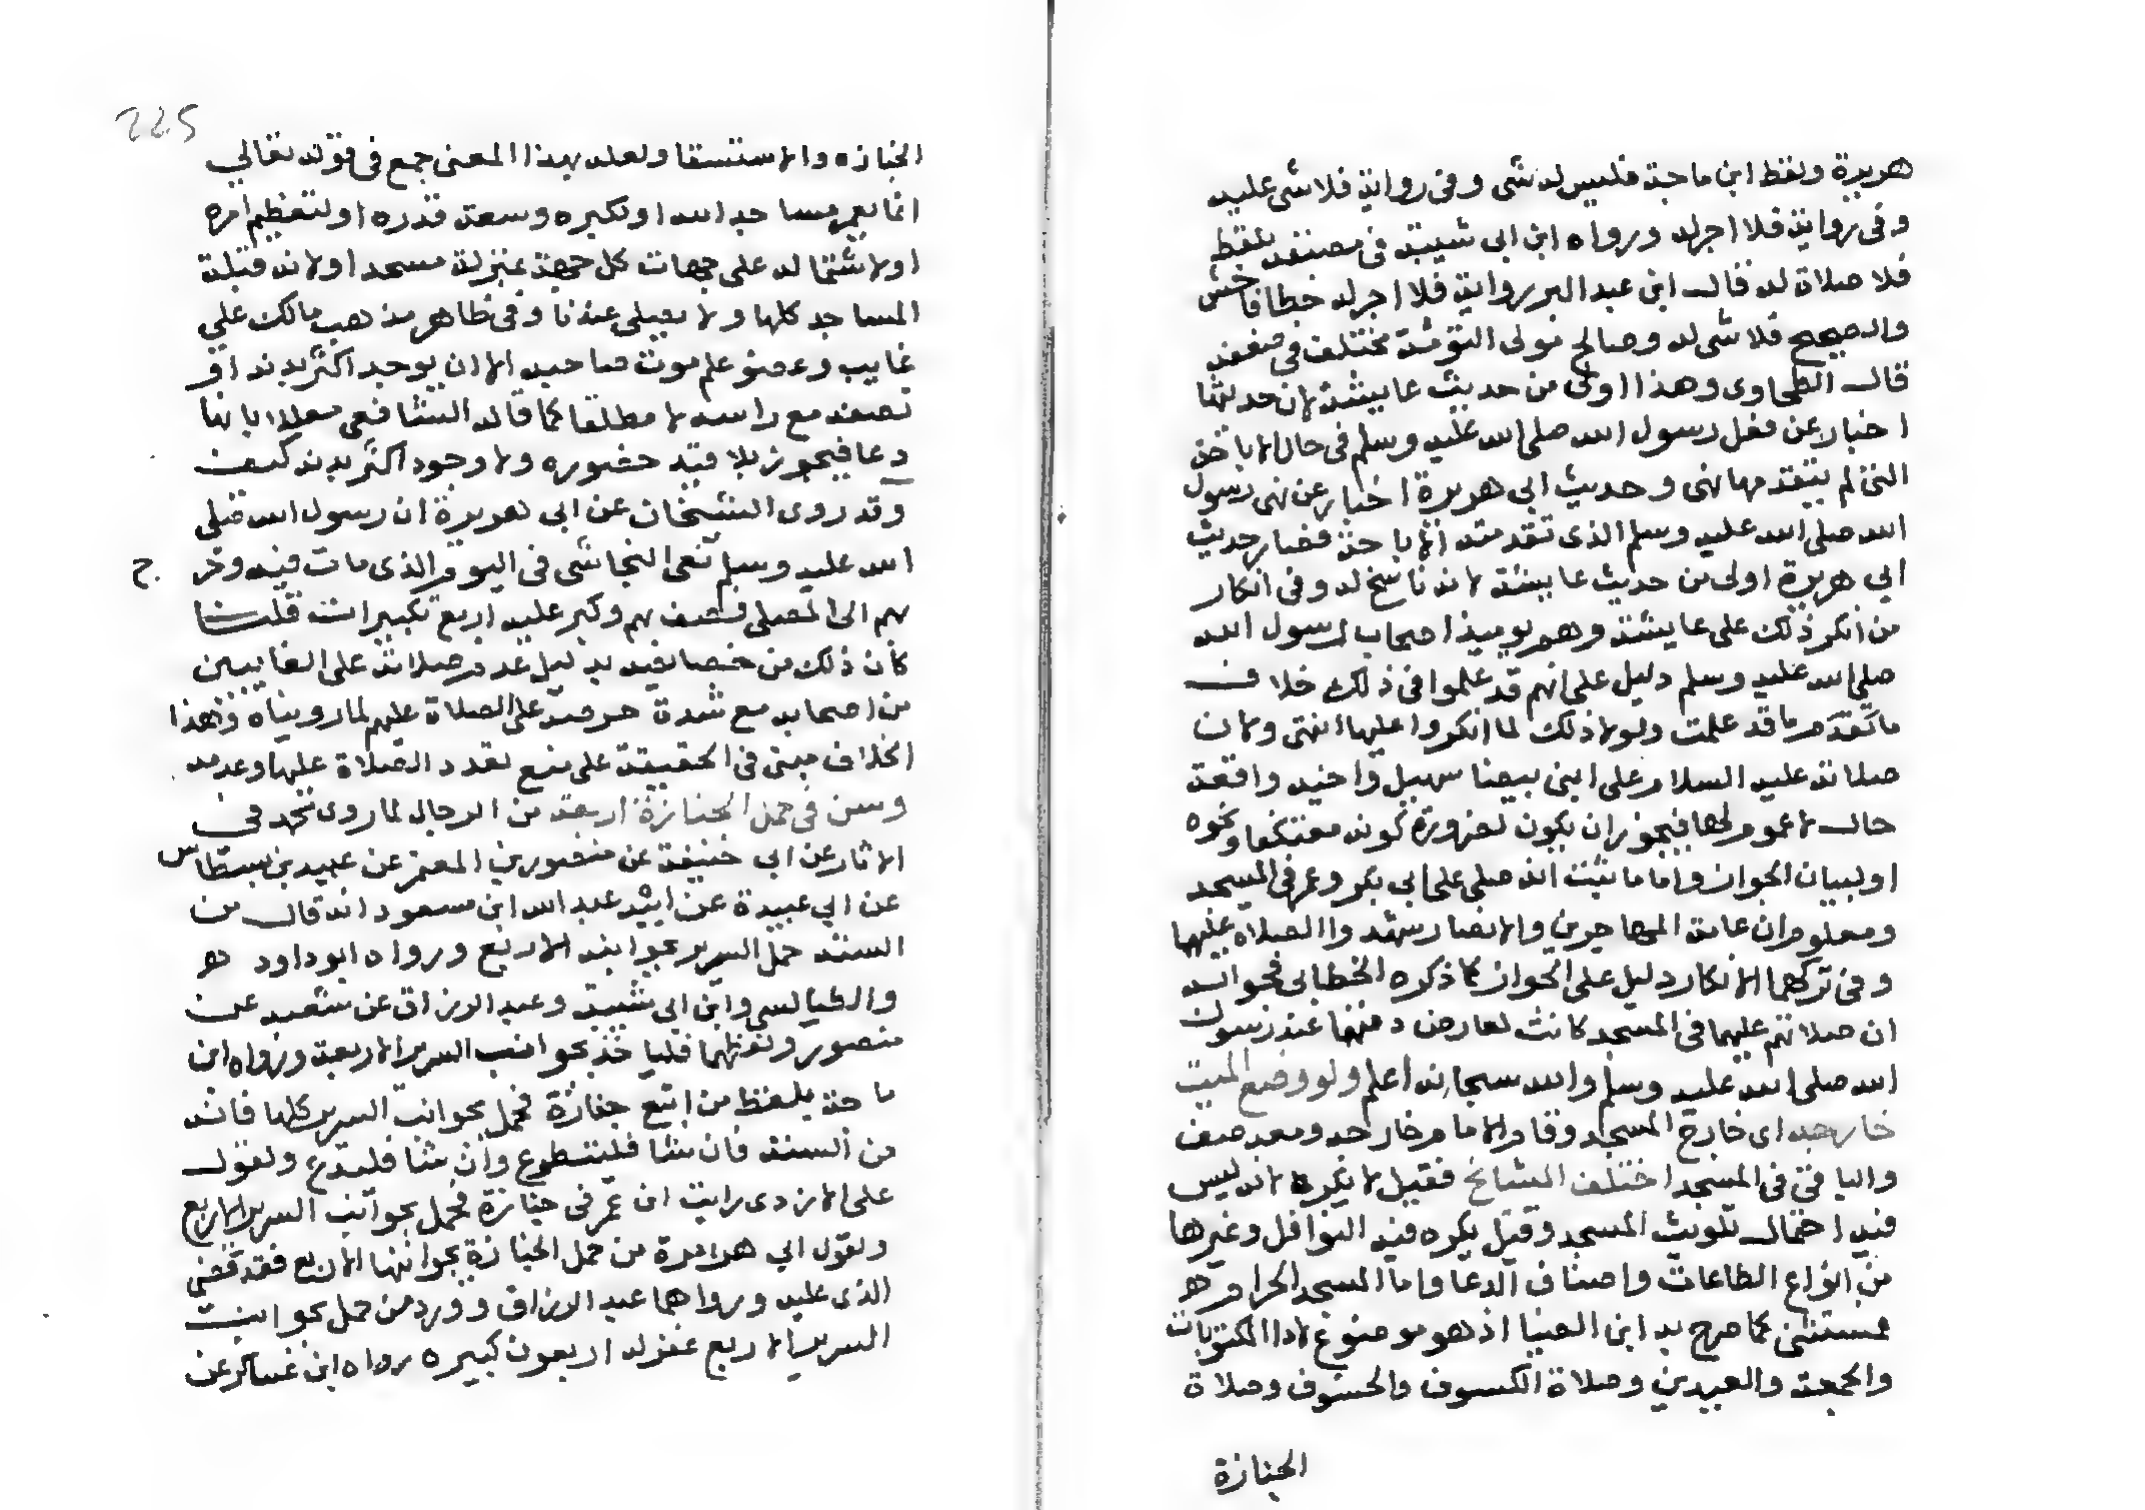 هريرة ولفظ ابن ماجة فليس له شى وفى رواية فلا شى عليه
وفى رواية فلا اجر له ورواه ابن ابى شيبة فى مصنفه بلفظ
فلا صلاة له قال ابن عبد البر رواية فلا اجر له خطا فاحش
والصحيح فلا شى له وصالح مولى التوئمة مختلف فى ضعفه
قال الطحاوى وهذا اولى من حديث عايشة لان حديثها
اخبار عن فعل رسول الله صلى الله عليه وسلم فى حال الاباحة
التى لم يتقدمها نهى وحديث ابى هريرة اخبار عن نهى رسول
الله صلى الله عليه وسلم الذى تقدمته الاباحة فصار حديث
ابى هريرة اولى من حديث عايشة لانه ناسخ له وفى انكار
من انكر ذلك على عايشة وهم يوميذ اصحاب رسول الله
صلى الله عليه وسلم دليل على انهم قد علموا فى ذلك خلاف
ما تقدم ما قد علمت ولولا ذلك لما انكروا عليها انتهى ولان
صلاته عليه السلام على ابنى بيضا سهيل واخيه واقعة
حال لا عموم لها فيجوز ان يكون لضرورة كونه معتكفا ونحوه
او لبيان الجواز واما ما ثبت انه صلى على ابى بكر وعمر فى المسجد
ومعلوم ان عامة المهاجرين والانصار شهدوا الصلاة عليهما
وفى تركهما الانكار دليل على الجواز كما ذكره الخطابى فجوابه
ان صلاتهم عليهما فى المسجد كانت لعارض دفنهما عند رسول
الله صلى الله عليه وسلم والله سبحانه اعلم ولو وضع الميت
خارجه اى خارج المسجد وقام الامام خارجه ومعه صف
والباقى فى المسجد اختلف المشائخ فقيل لا يكره لانه ليس
فيه احتمال تلويث المسجد وقيل يكره فيه النوافل وغيرها
من انواع الطاعات واصناف الدعا واما المسجد الحرام هـ
فمستثنى كما صرح به ابن الضيا اذ هو موضوع لادا المكتوبات
والجمعة والعيدين وصلاة الكسوف والخسوف وصلاة
الجنازة
225
الجنازه والاستسقا ولعله بهذا المعنى جمع فى قوله تعالى
انما يعمر مساجد الله او لكبره وسعة قدره او لتعظيم امره
او لاشتماله على جهات كل جهة بمنزلة مسجد او لانه قبلة
المساجد كلها ولا يصلى عندنا وفى ظاهر مذهب مالك على
غايب وعضو علم موت صاحبه الا ان يوجد اكثر بدنه او
نصفه مع راسه لا مطلقا كما قاله الشافعى معللا بانها
دعا فيجوز بلا قيد حضوره ولا وجود اكثر بدنه كيف
وقد روى الشيخان عن ابى هريرة ان رسول الله صلى
الله عليه وسلم نعى النجاشى فى اليوم الذى مات فيه وخر
ج
بهم الى المصلى فصف بهم وكبر عليه اربع تكبيرات قلت
كان ذلك من خصائصه بدليل عدم صلاته على الغايبين
من اصحابه مع شدة حرصه على الصلاة عليهم لما رويناه وهذا
الخلاف مبنى فى الحقيقة على منع تعدد الصلاة عليها وعدمه
وسن فى حمل الجنازة اربعة من الرجال لما روى محمد فى
الاثار عن ابى حنيفة عن منصور بن المعتمر عن عبيد بن بسطاس
عن ابى عبيدة عن ابيه عبد الله ابن مسعود انه قال من
السنة حمل السرير بجوانبه الاربع ورواه ابو داود هـ
والطيالسى وابن ابى شيبة وعبد الرزاق عن شعبة عن
منصور ولفظهما فلياخذ بجوانب السرير الاربعة ورواه ابن
ماجة بلفظ من اتبع جنازة فحمل بجوانب السرير كلها فانه
من السنة فان شا فليتطوع وان شا فليدع ولقول
على الازدى رايت ابن عمر فى جنازة فحمل بجوانب السرير الاربع
ولقول ابى هريرة من حمل الجنازة بجوانبها الاربع فقد قضى
الذى عليه ورواهما عبد الرزاق وورد من حمل بجوانب
السرير الاربع غفر له اربعون كبيرة رواه ابن عساكر عن